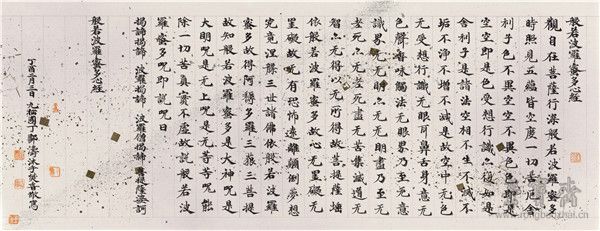 般若波羅蜜多心經
觀自在菩薩行深般若波羅蜜多
時照見五蘊皆空度一切苦厄舍
利子色不異空空不異色色即是
空空即是色受想行識亦復如是
舍利子是諸法空相不生不滅不
垢不淨不增不減是故空中无色
无受想行識无眼耳鼻舌身意无
色聲香味觸法无眼界乃至无意
識界无无明亦无无明盡乃至无
老死亦无老死盡无苦集滅道无
智亦无得以无所得故菩提薩埵
依般若波羅蜜多故心无罣礙无
罣礙故无有恐怖遠離顛倒夢想
究竟涅槃三世諸佛依般若波羅
蜜多故得阿耨多羅三藐三菩提
故知般若波羅蜜多是大神呪是
大明呪是无上呪是无等等呪能
除一切苦真實不虛故說般若波
羅蜜多呪即說呪曰
揭諦揭諦 波羅揭諦 波羅僧揭諦 菩提薩婆訶
般若波羅蜜多心經
丁酉三月三日 九松園丁郭濤沐手焚香敬寫
www.rongbaozhai.cn